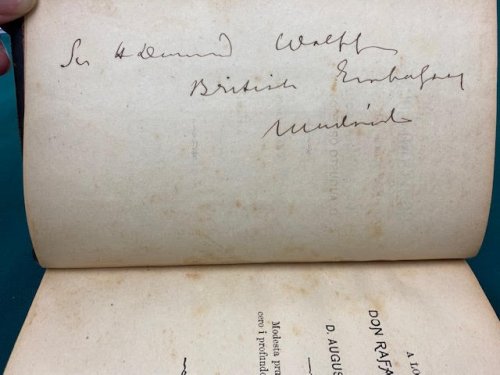 Sir H Drummond Wolff
British Embassy
Madrid
A LO
DON RAFA
D. AUGUS
Modesta pru
cero i profundo